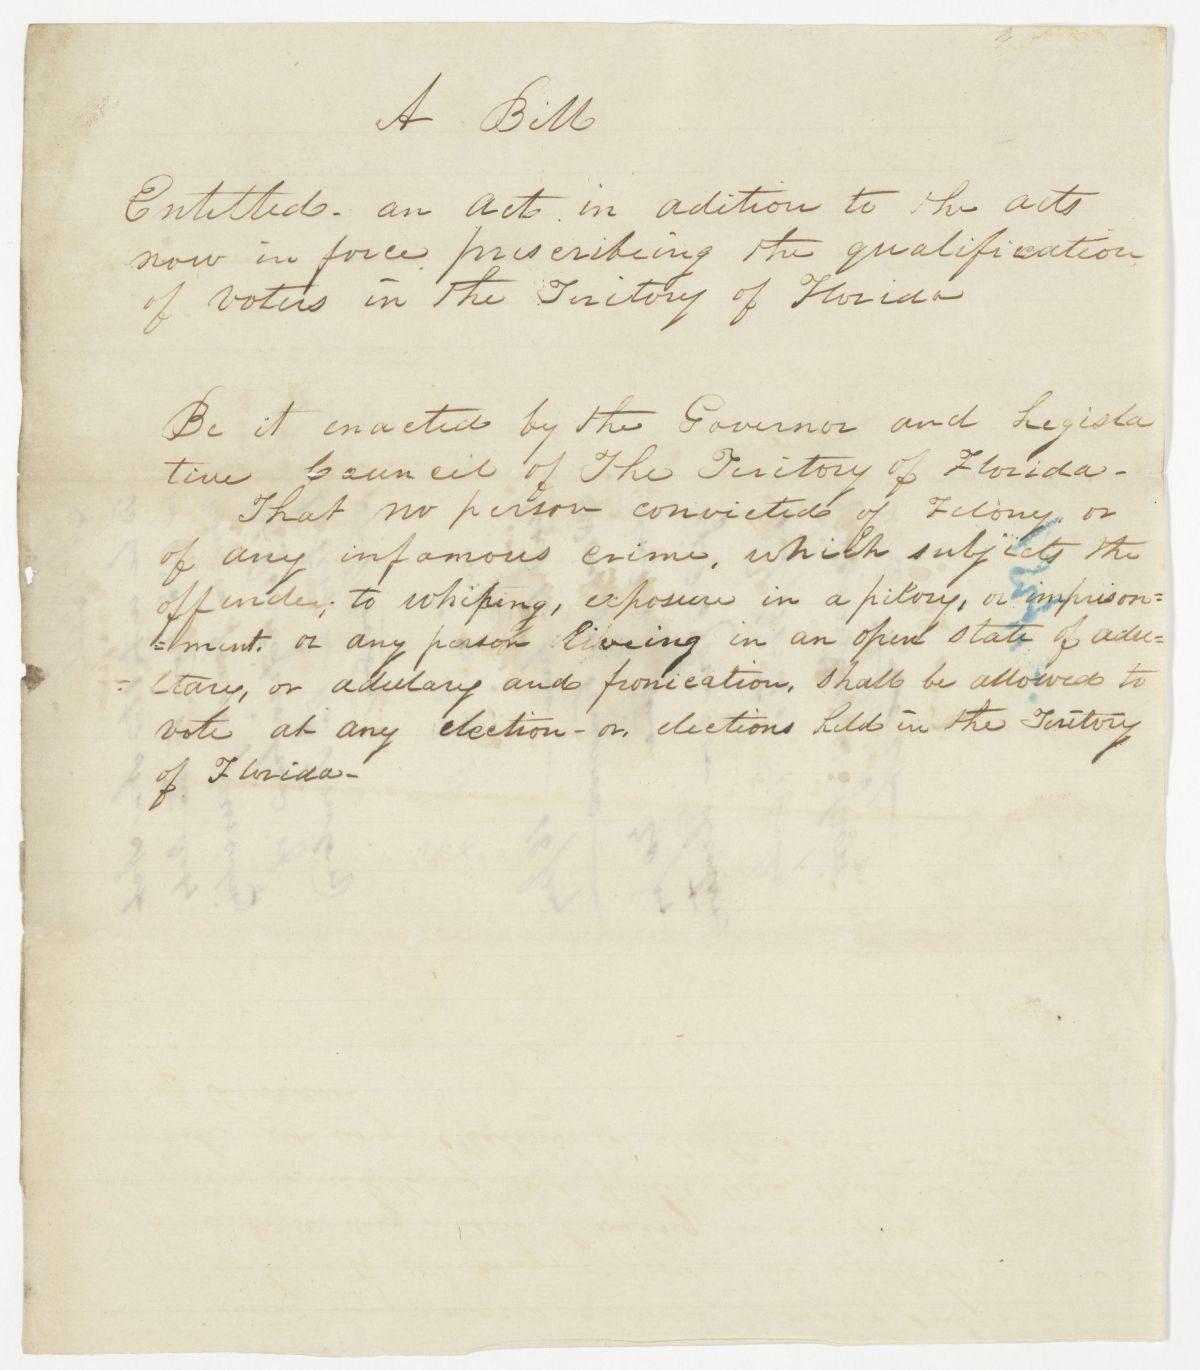 A Bill
Entitled - an act in adition to the acts
now in force prescribeing the qualification
of voters in the Teritory of Florida
Be it enacted by the Governor and Legisla
tive Council of The Teritory of Florida -
That no person convicted of Felony or
of any infamous crime, which subjects the
offender, to whiping, exposure in a pilory, or imprison=
=ment. or any person liveing in an open state of adu=
=ltary, or adultary and fronication, shall be allowed to
vote at any election - or, elections held in the Teritory
of Florida -